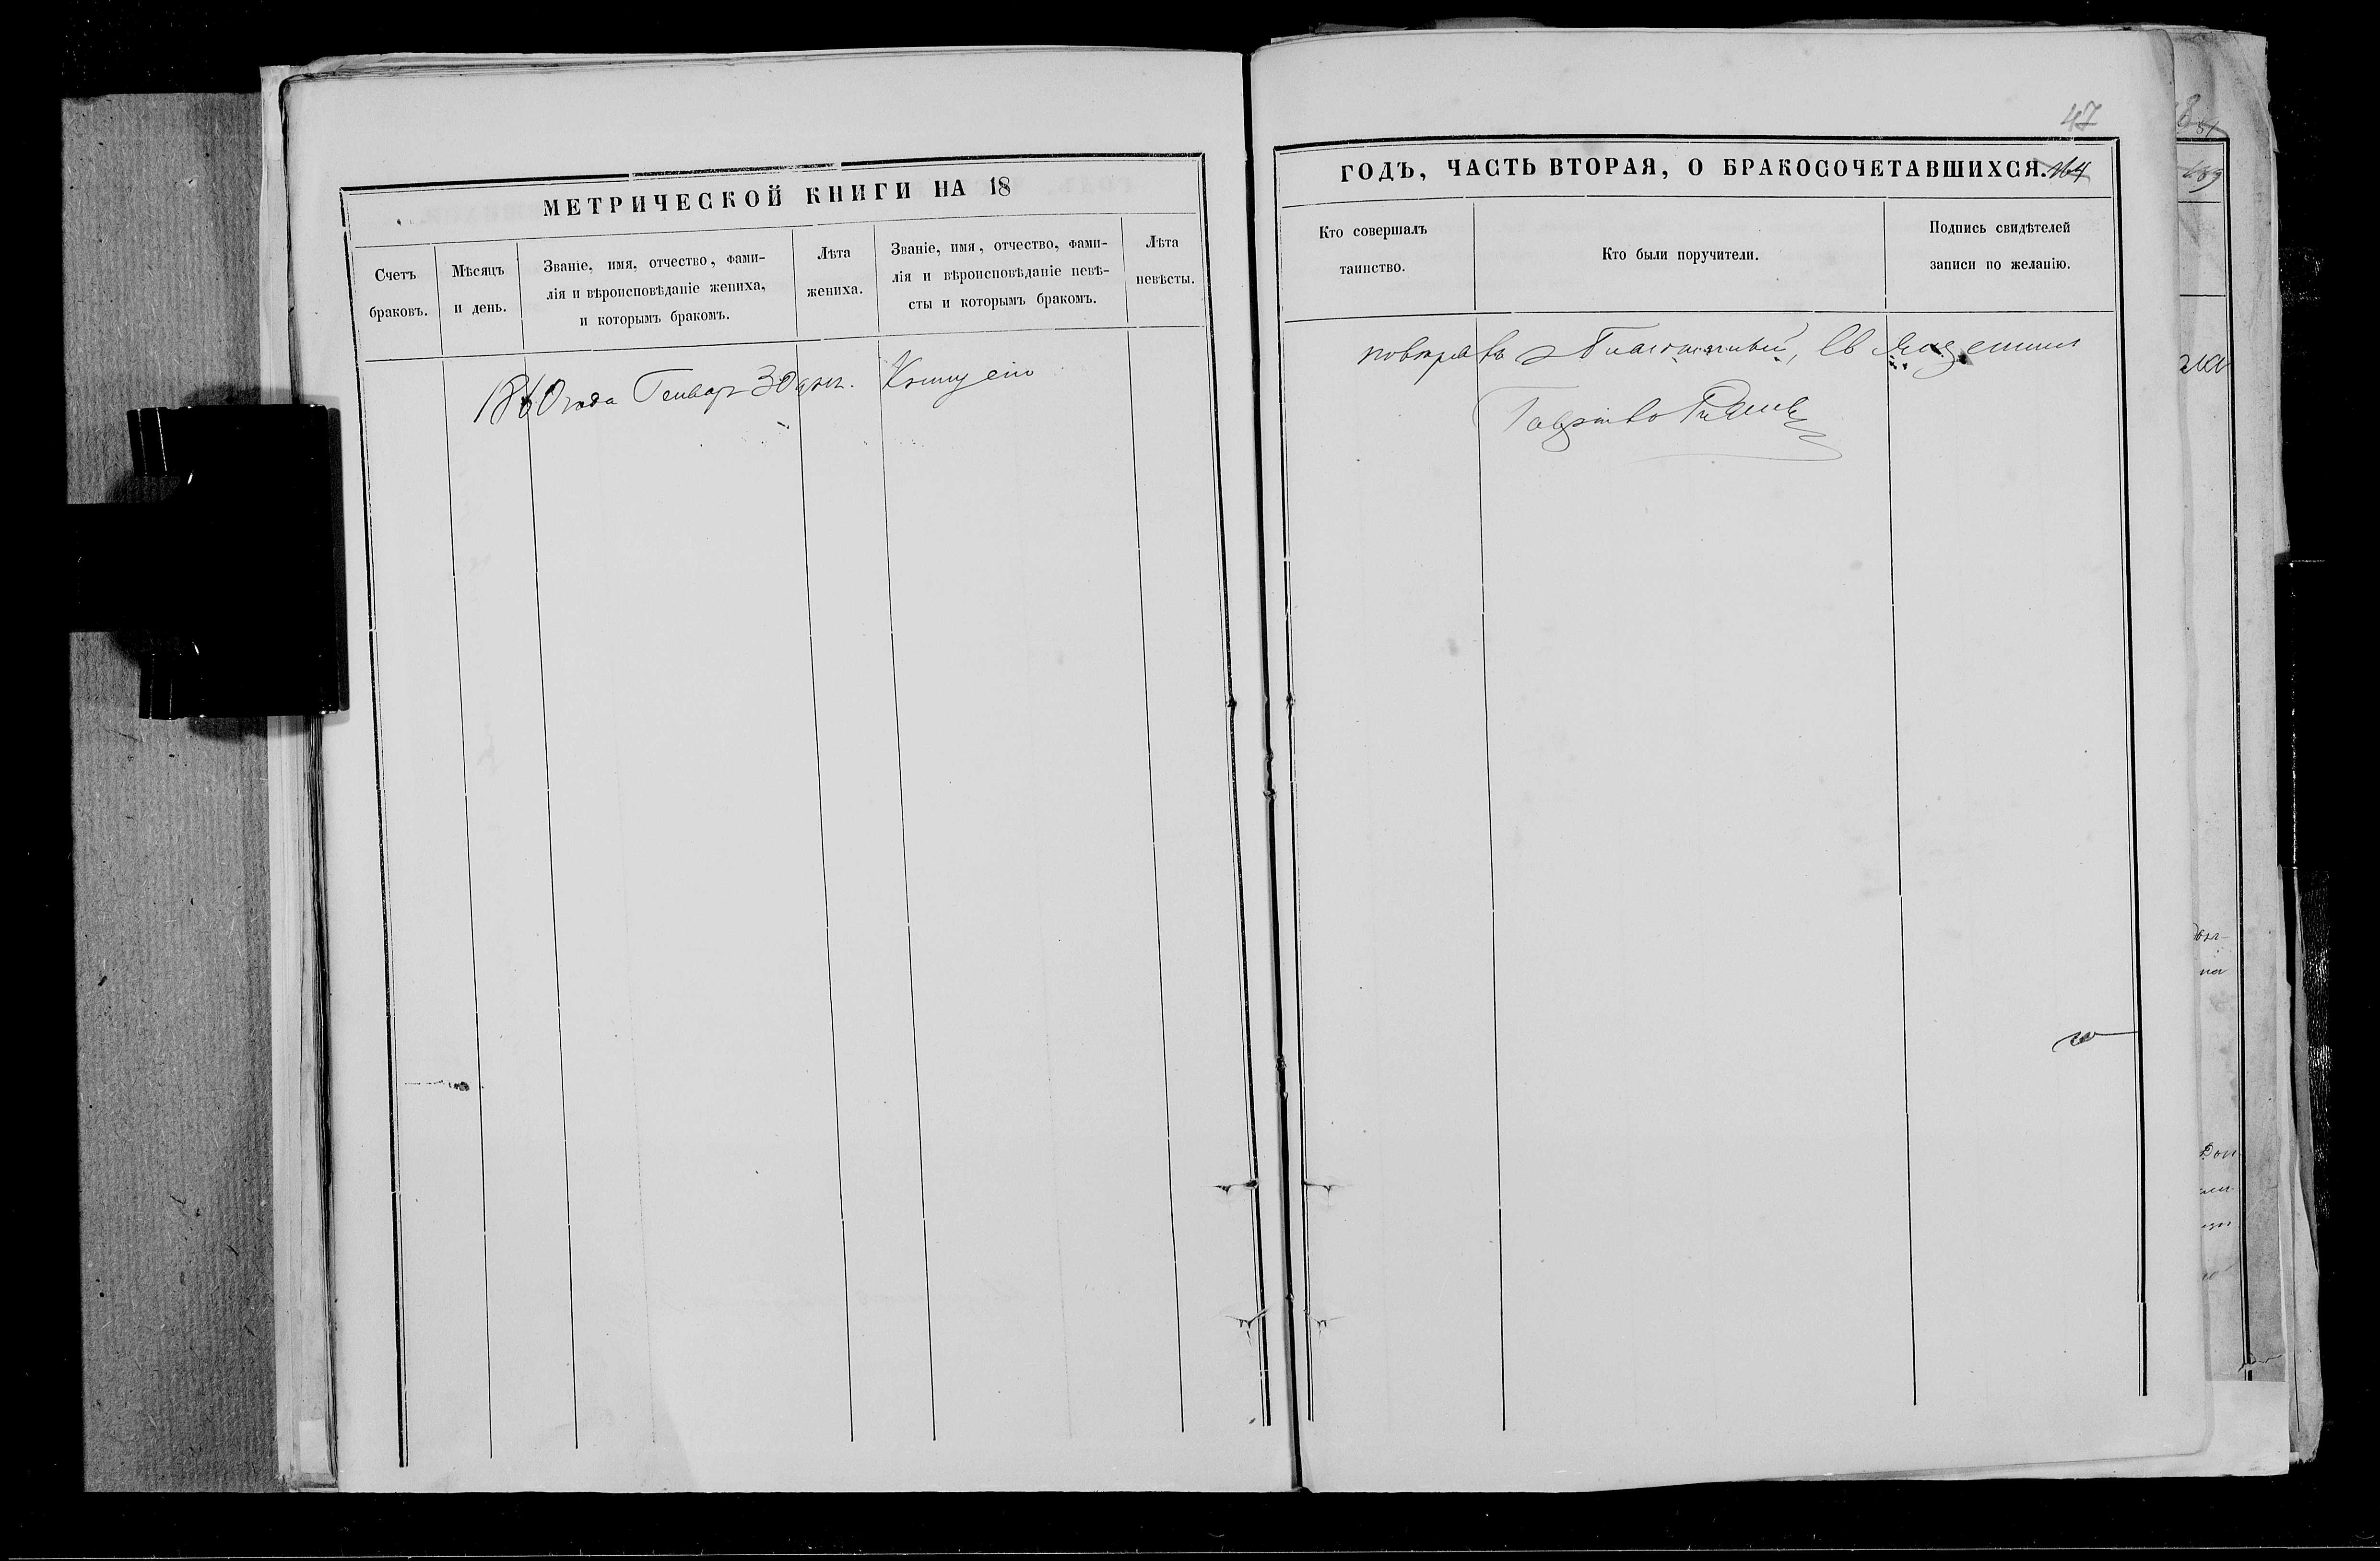 МЕТРИЧЕСКОЙ КНИГИ НА 18
Счетъ
браковъ.
Мѣсяцъ
и день.
Званіе, имя, отчество, фами-
лія и вѣроисповѣданіе жениха,
и которымъ бракомъ.
Лѣта
жениха.
Званіе, имя, отчество, фами-
лія и вѣроисповѣданіе невѣ-
сты и которымъ бракомъ.
Лѣта
невѣсты.
1860 года Генвар 30 дня. Книгу сію
47
ГОДЪ, ЧАСТЬ ВТОРАЯ, О БРАКОСОЧЕТАВШИХСЯ. 164
Кто совершалъ
таинство.
Кто были поручители.
Подпись свидѣтелей
записи по желанію.
Благочинный,